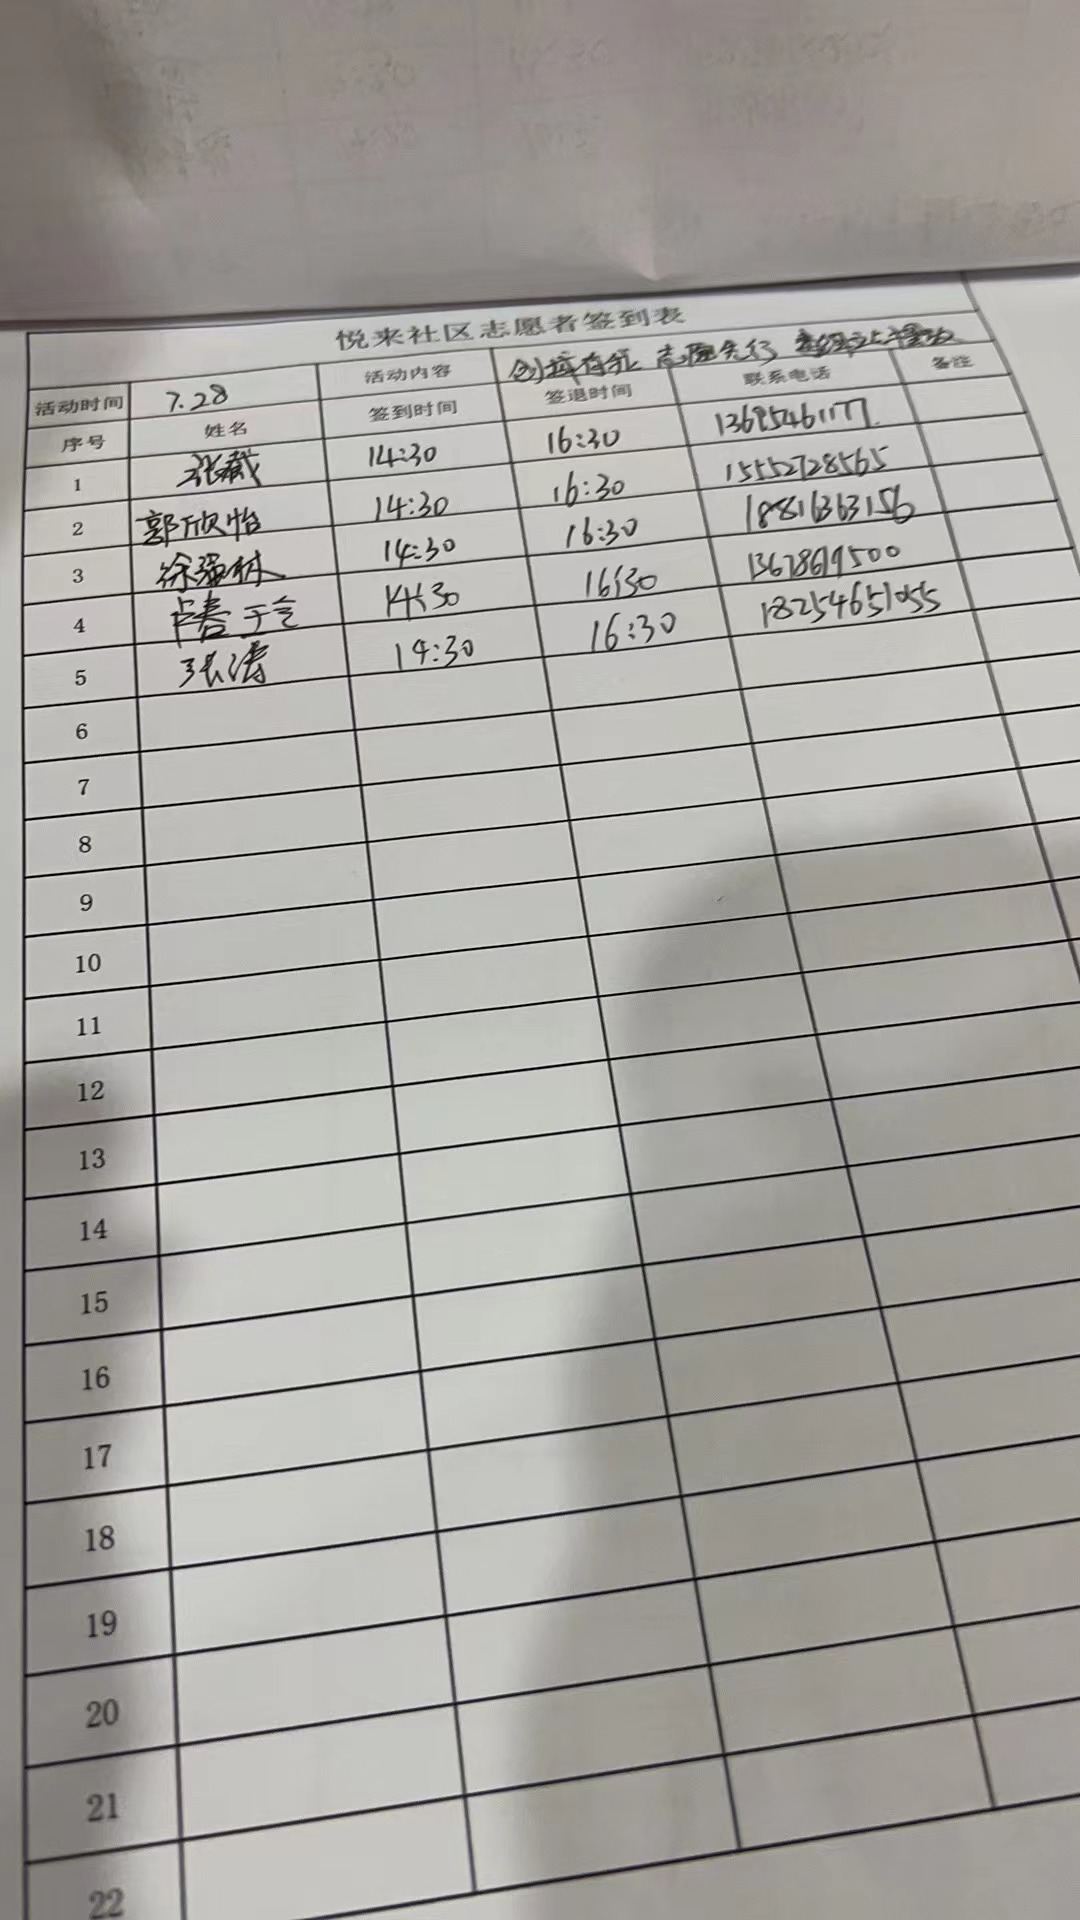 悦来社区志愿者签到表
活动时间 7.28 活动内容 创城有我 志愿先行
序号 姓名 签到时间 签退时间 联系电话 备注
1 14:30 16:30
2 郭欣怡 14:30 16:30 15552728565
3 14:30 16:30 18816363156
4 14:30 16:30 13678619500
5 张涛 14:30 16:30 18254651055
6
7
8
9
10
11
12
13
14
15
16
17
18
19
20
21
22